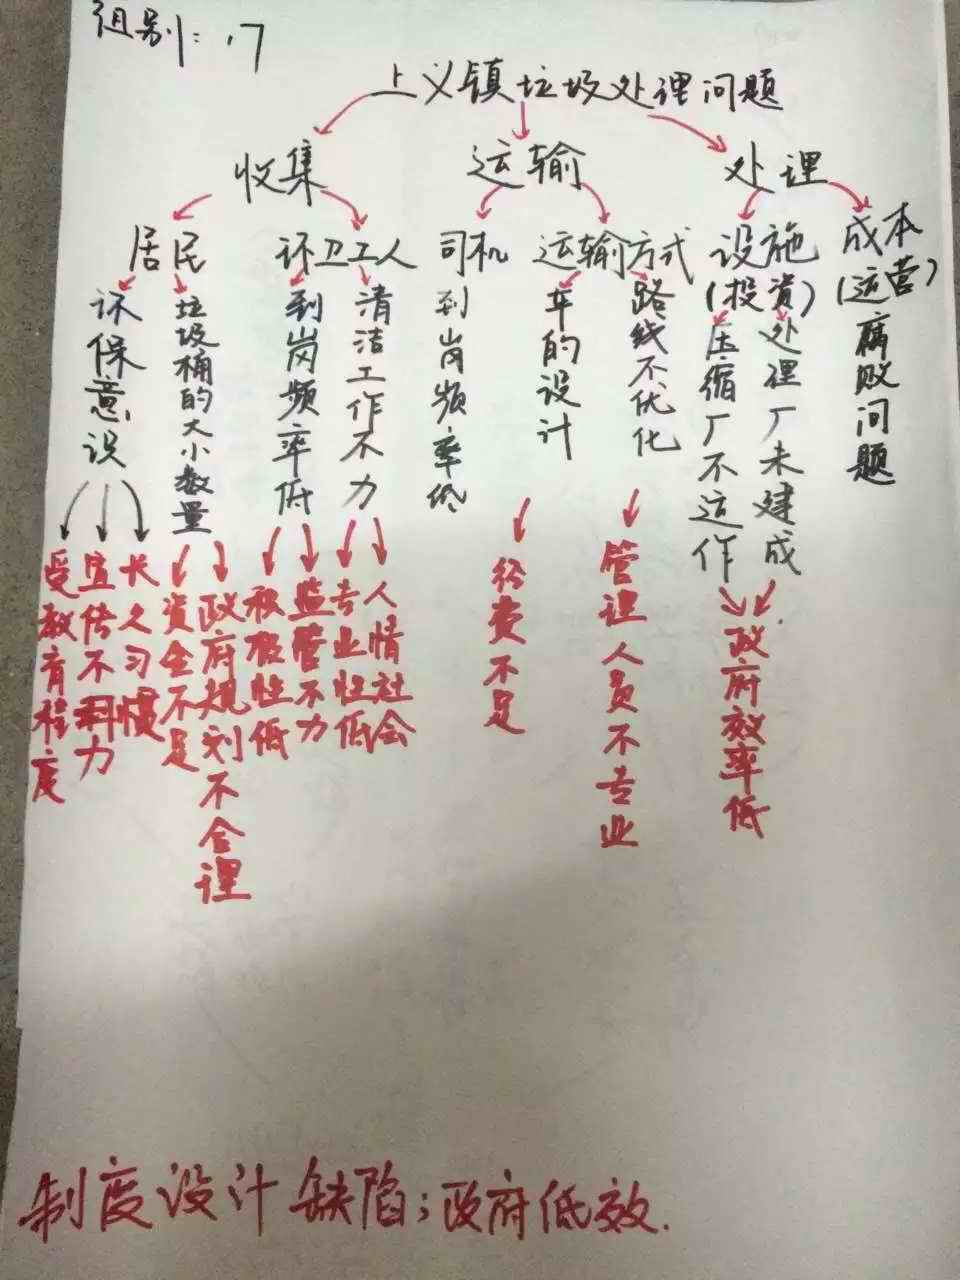 组别：17
上义镇垃圾处理问题
收集
运输
处理
居民
环卫工人
司机
运输方式
设施
(投资)
成本
(运营)
环保意识
垃圾桶的大小数量
到岗频率低
清洁工作不力
到岗频率低
车的设计
路线不优化
压缩厂不运作
处理厂未建成
腐败问题
受教育程度
宣传不到力
长久习惯
资金不足
政府规划不合理
积极性低
监管不力
专业性低
人情社会
经费不足
管理人员不专业
政府效率低
制度设计缺陷；政府低效.